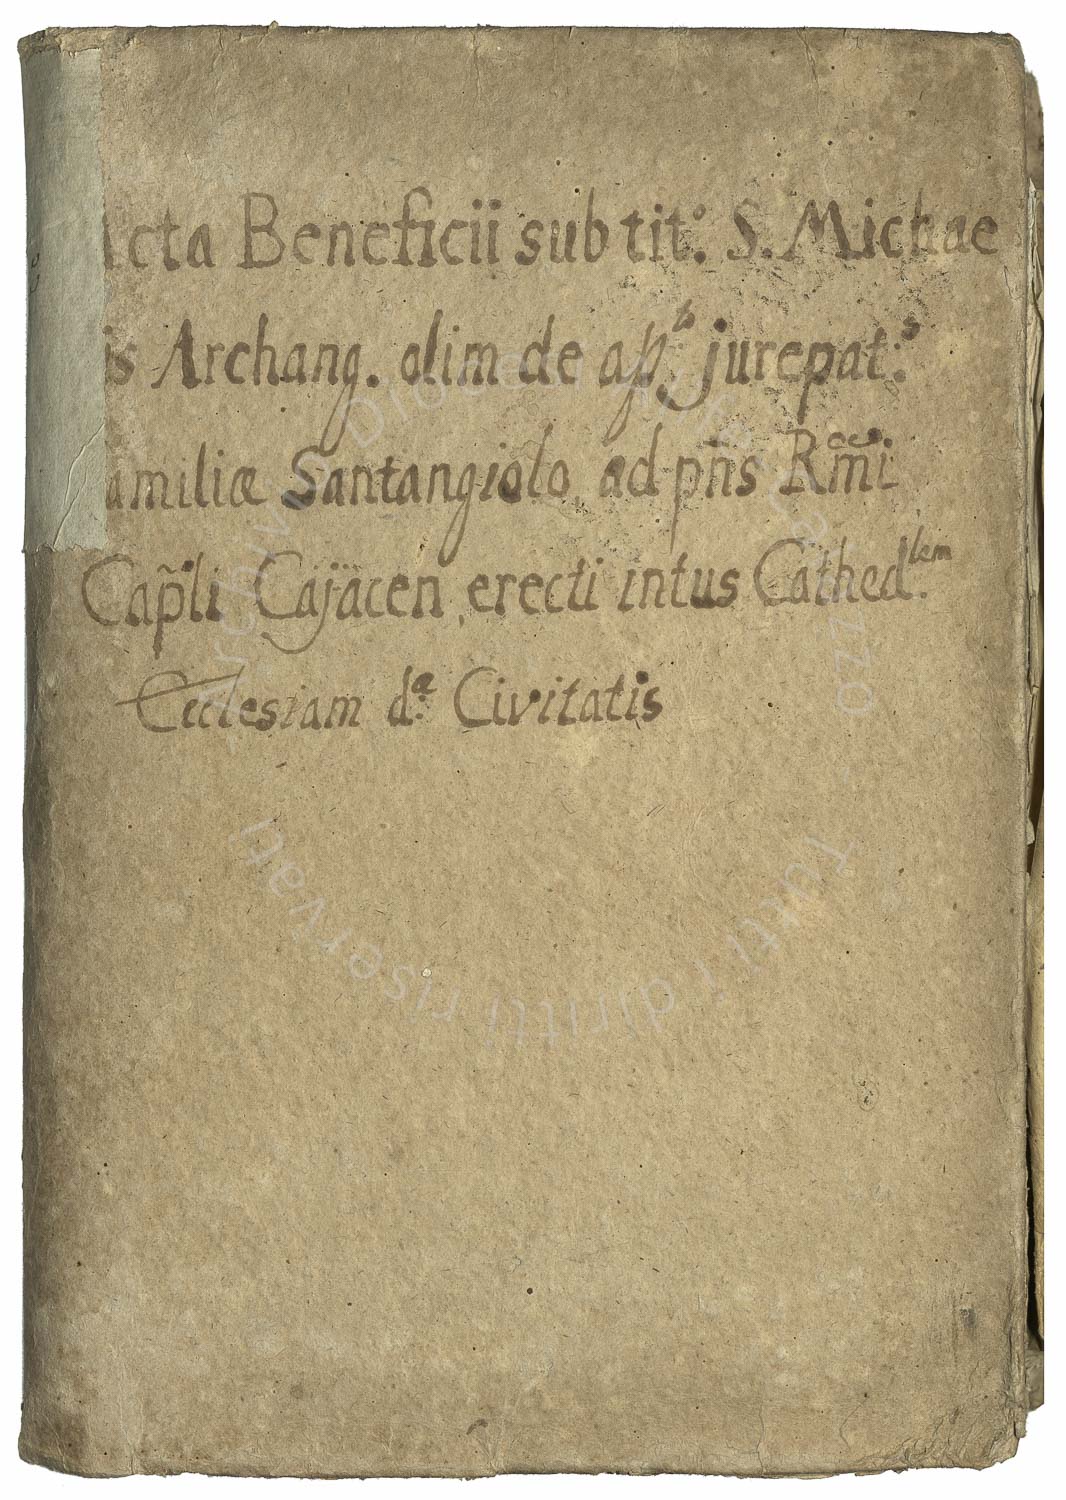 Acta Beneficii sub tit.o S. Michae
is Archang. olim de ap.b jurepat.s
amiliæ Santangiolo, ad pñs R̃mi
Cap̃li Cajacen, erecti intus Cathed.lem
Ecclesiam d.a Civitatis
Archivio Diocesi
Tutti i diritti riservati